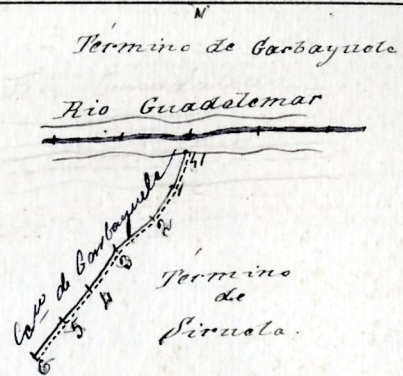 N
Término de Garbayuela
Rio Guadalemar
41
2
3
4
5
6
Cam de Garbayuela
Término
de
Siruela.